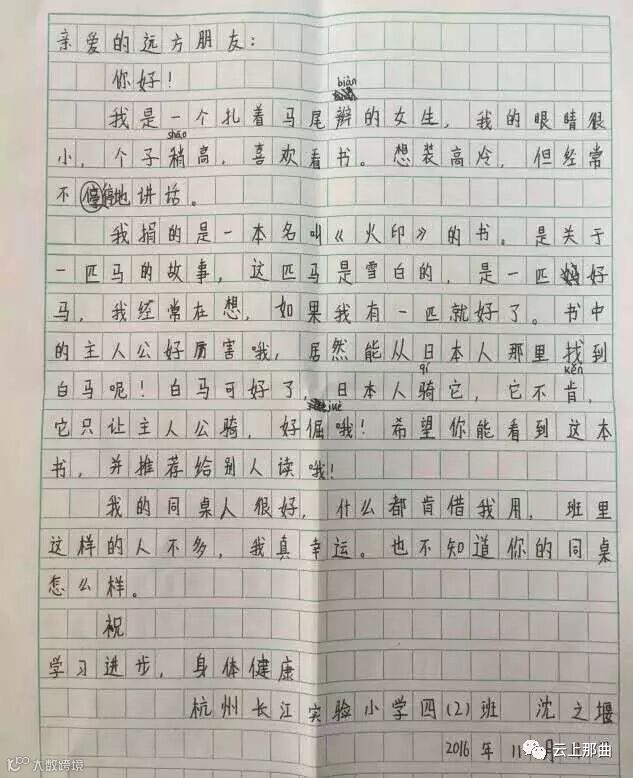 亲爱的远方朋友：
你好！
biàn
我是一个扎着马尾辫的女生，我的眼睛很
shāo
小，个子稍高，喜欢看书。想装高冷，但经常
不停地讲话。
我捐的是一本名叫《火印》的书。是关于
一匹马的故事，这匹马是雪白的，是一匹好
马，我经常在想，如果我有一匹就好了。书中
的主人公好厉害哦，居然能从日本人那里找到
qí kěn
白马呢！白马可好了，日本人骑它，它不肯，
jué
它只让主人公骑，好倔哦！希望你能看到这本
书，并推荐给别人读哦！
我的同桌人很好，什么都肯借我用，班里
这样的人不多，我真幸运。也不知道你的同桌
怎么样。
祝
学习进步，身体健康
杭州长江实验小学四(2)班 沈之堰
2016年11月
云上那曲
大数跨境